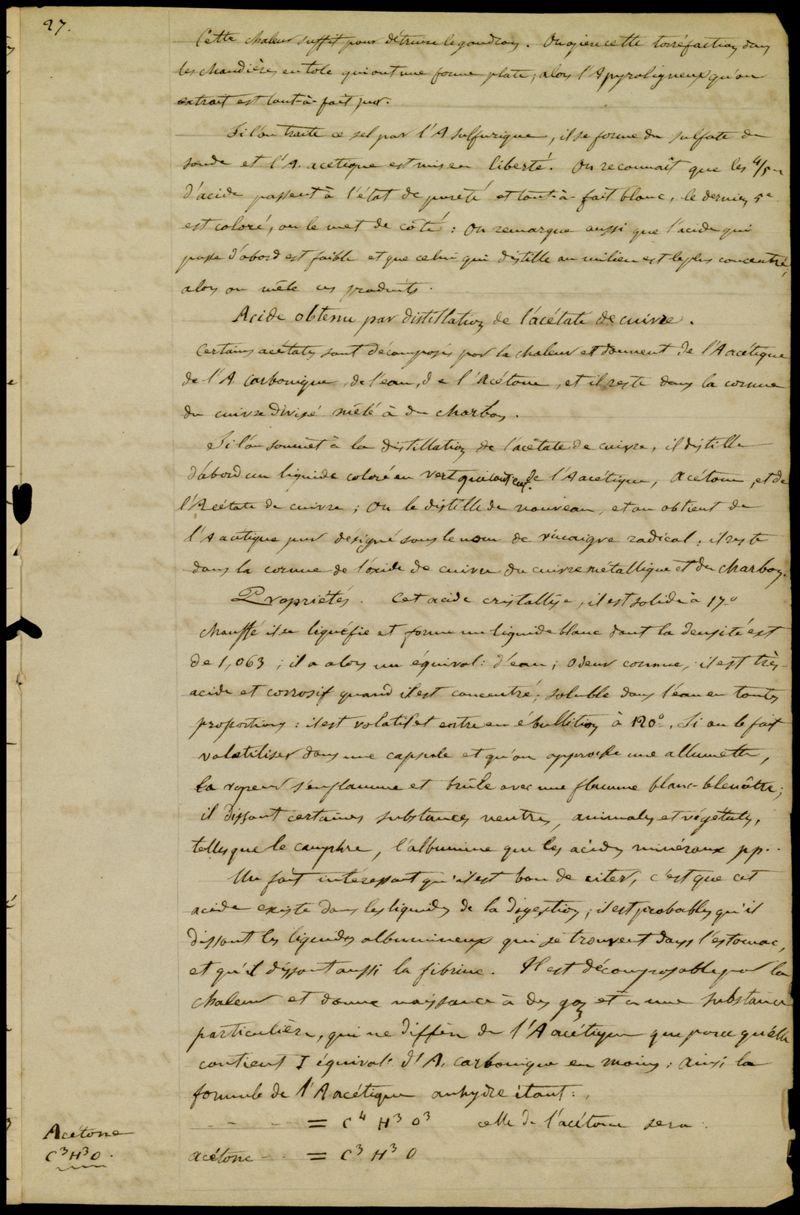 27.
Cette chaleur suffit pour détruire le goudron. On opère cette torréfaction dans
les chaudières en tole qui ont une forme plate, alors l'A pyroligneux qu'on
extrait est tout-à-fait pur.
Si l'on traite ce sel par l'A sulfurique, il se forme du sulfate de
soude et l'A. acétique est mis en liberté. On reconnaît que les 4/5 
d'acide passent à l'état de pureté et tout-à-fait blanc, le dernier 5e
est coloré, on le met de côté : On remarque aussi que l'acide qui
passe d'abord est faible et que celui qui distille au milieu est le plus concentré,
alors on mêle ces produits.
Acide obtenu par distillation de l'acétate de cuivre.
Certains acétates sont décomposés par la chaleur et donnent de l'A acétique
de l'A carbonique, de l'eau, de l'Acétone, et il reste dans la cornue
du cuivre divisé mêlé à du charbon.
Si l'on soumet à la distillation de l'acétate de cuivre, il distille
d'abord un liquide coloré en vert qui contient de l'A acétique, Acétone, et de
l'Acétate de cuivre ; On le distille de nouveau, et on obtient de
l'A acétique pur désigné sous le nom de vinaigre radical ; il reste
dans la cornue de l'oxide de cuivre du cuivre métallique et du charbon.
Propriétés. Cet acide cristallise, il est solide à 17°
chauffé il se liquéfie et forme un liquide blanc dont la densité est
de 1,063 ; il a alors un équival: d'eau ; odeur connue, il est très-
acide et corrosif quand il est concentré ; soluble dans l'eau en toutes
proportions : il est volatil et entre en ébullition à 120°. Si on le fait
volatiliser dans une capsule et qu'on approche une allumette,
la vapeur s'enflamme et brûle avec une flamme blanc-bleuâtre ;
il dissout certaines substances neutres, animales et végétales,
telles que le camphre, l'albumine que les acides minéraux pp.
Un fait intéressant qu'il est bon de citer, c'est que cet
acide existe dans les liquides de la digestion ; il est probable qu'il
dissout les liquides albumineux qui se trouvent dans l'estomac,
et qu'il dissout aussi la fibrine. Il est décomposable par la
chaleur et donne naissance à des gaz et à une substance
particulière, qui ne diffère de l'A acétique que parce qu'elle
contient 1 équival: d'A. carbonique en moins ; ainsi la
formule de l'A acétique anhydre étant :
= C4 H3 O3 celle de l'acétone sera :
Acétone
C3H3O.
acétone = C3 H3 O